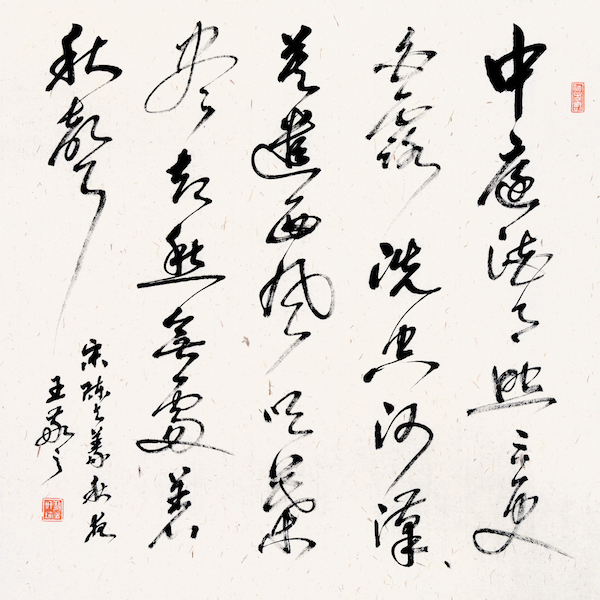 中庭淡月照三更
白露洗空河漢
莫遣西風吹葉
尽却愁無處著
秋聲
宋陳与義秋夜
王敬之